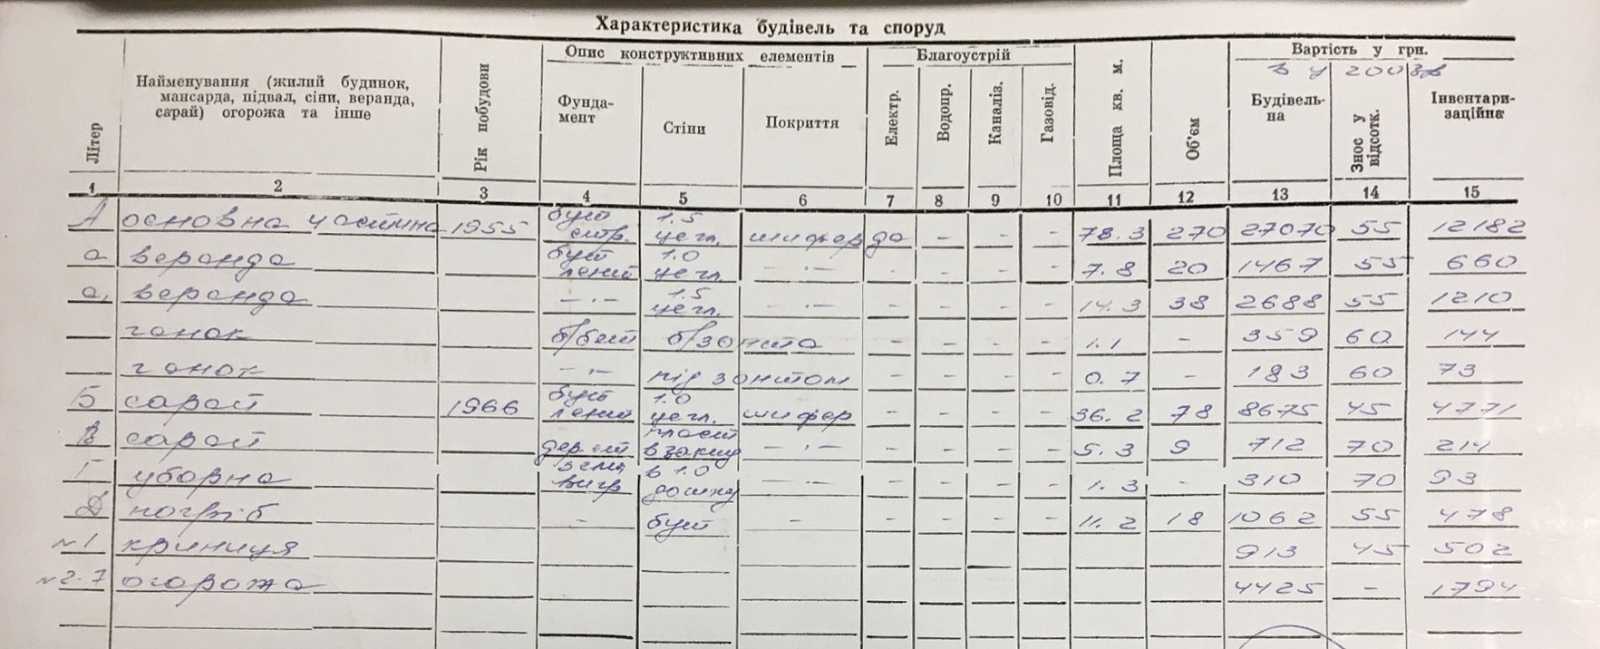 Характеристика будівель та споруд
Літер
Найменування (жилий будинок, мансарда, підвал, сіни, веранда, сарай) огорожа та інше
Рік побудови
Опис конструктивних елементів
Фунда-
мент
Стіни
Покриття
Благоустрій
Електр.
Водопр.
Каналіз.
Газовід.
Площа кв. м.
Об'єм
Вартість у грн.
в у 2003р
Будівель-
на
Знос у відсотк.
Інвентари-
заційна
1 2 3 4 5 6 7 8 9 10 11 12 13 14 15
А основна частина 1955 бут стр. 1.5 цегл. шифер да - - - 78.3 270 27070 55 12182
а веранда бут лений 1.0 цегл. -·- - - - - 7.8 20 1467 55 660
а, веранда -·- 1.5 цегл. -·- - - - - 14.3 38 2688 55 1210
ганок б/бет б/зонта - - - - 1.1 - 359 60 144
ганок -·- під зонтом - - - - 0.7 - 183 60 73
Б сарай 1966 бут лений 1.0 цегл. шифер - - - - 36.2 78 8675 45 4771
В сарай -·- - - - - 5.3 9 712 70 214
Г уборна в 1.0 дошку -·- - - - - 1.3 - 310 70 93
Д погріб - бут - - - - - 11.2 18 1062 55 478
№1 криниця 913 45 502
№2-7 огорожа 4425 - 1794